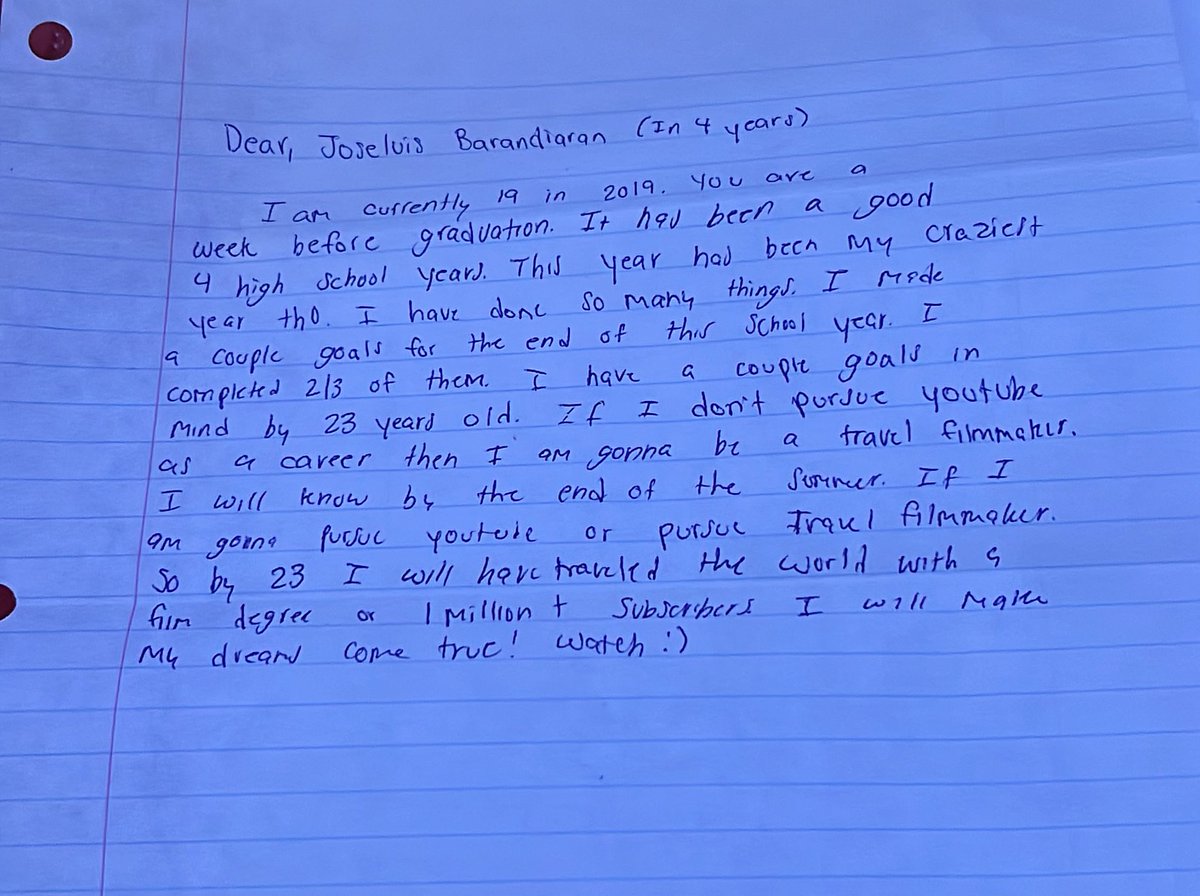 Dear, Joseluis Barandiaran (In 4 years)
I am currently 19 in 2019. You are a
week before graduation. It has been a good
4 high school years. This year has been my craziest
year tho. I have done so many things. I made
a couple goals for the end of this school year. I
completed 2/3 of them. I have a couple goals in
mind by 23 years old. If I don't pursue youtube
as a career then I am gonna be a travel filmmaker.
I will know by the end of the summer. If I
am gonna pursue youtube or pursue Travel filmmaker.
So by 23 I will have traveled the world with a
film degree or 1 million + subscribers I will make
my dreams come true! Watch :)